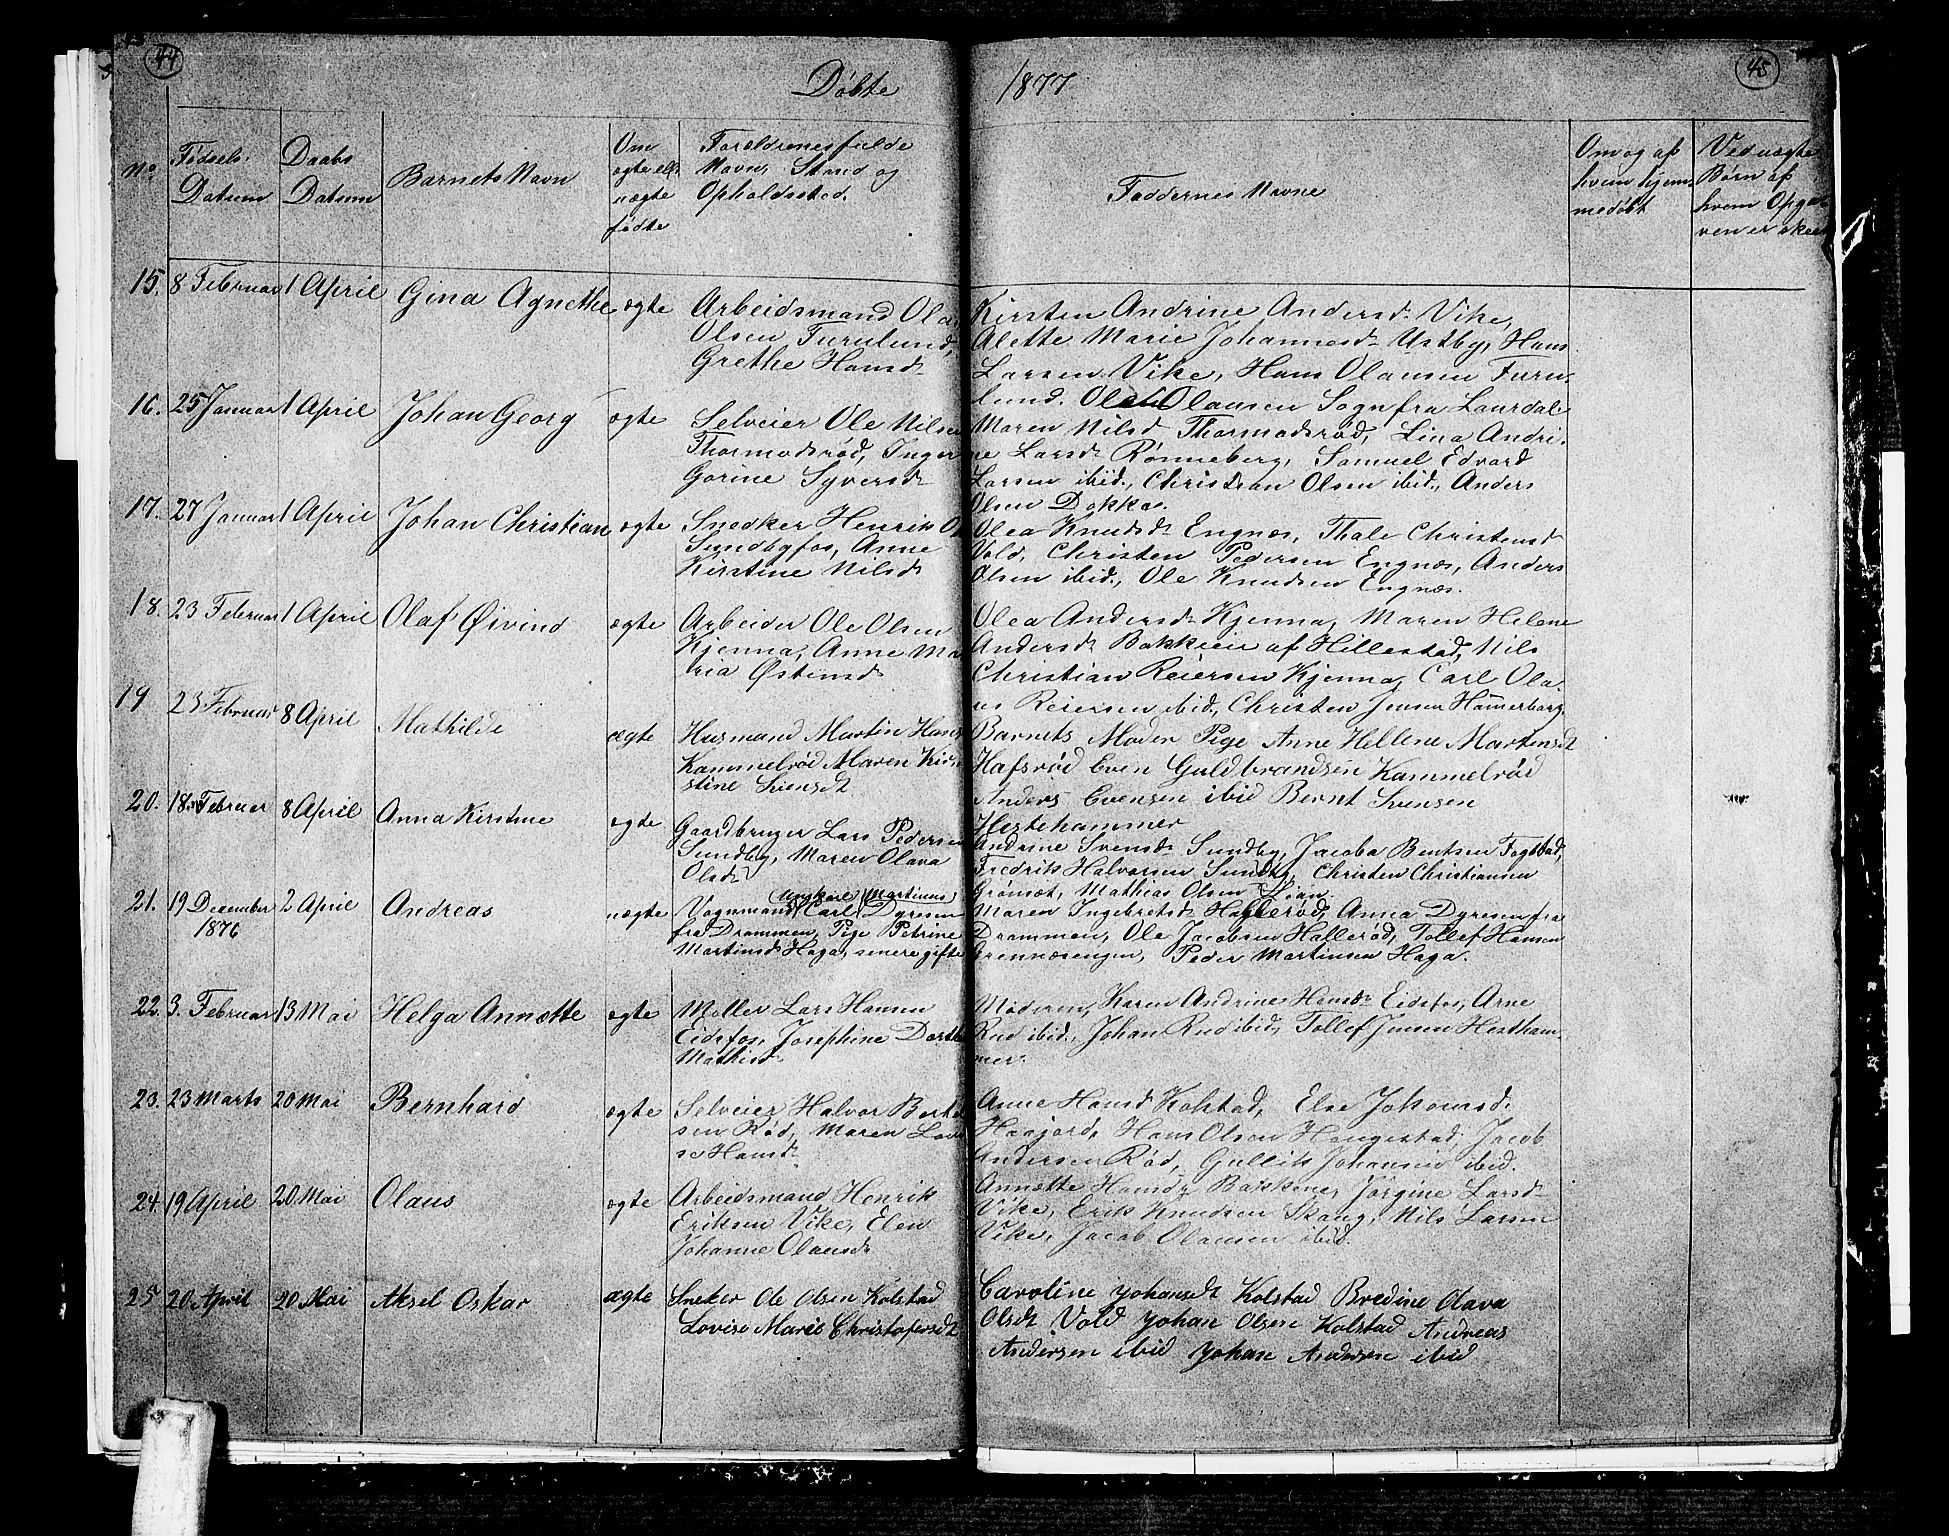 44
45
Döbte 1877
No.
Födsels-
Datum
Daabs
Datum
Barnets Navn
Om
ægte ell.
uægte
fødte
Forældrenes fulde
Navn, Stand og
Opholdssted.
Faddernes Navne
Om og af
hvem hjem-
medöbt
Ved uægte
Børn af
hvem Opga-
ven er skeet
15. 8 Februar 1 April Gina Agnethe ægte
Arbeidsmand Ola
Olsen Furulund,
Grethe Hansd.
Kirsten Andrine Andersd. Vike,
Alette Marie Johannesd. Ustby, Hans
Larsen Vike, Hans Olausen Furu-
lund. Olausen Sogn fra Laurdal.
16. 25 Januar 1 April Johan Georg ægte
Selveier Ole Nilsen
Thormodsrød, Inger
Gorine Syversd.
Maren Nilsd. Thormodsrød, Lina Andri-
ne Larsd. Rønneberg, Samuel Edvard
Larsen ibid., Christian Olsen ibid., Anders
Olsen Dokka.
17. 27 Januar 1 April Johan Christian ægte
Snedker Henrik O
Sundbyfos, Anne
Kirstine Nilsd.
Olea Knudsd. Engnæs, Thale Christensd.
Vold, Christen Pedersen Engnæs, Anders
Olsen ibid., Ole Knudsen Engnæs.
18. 23 Februar 1 April Olaf Øivind ægte
Arbeider Ole Olsen
Kjenna, Anne Ma
ria Østensd.
Olea Andersd. Kjenna, Maren Helene
Andersd. Bakkeeie af Hillestad, Nils
Christian Reiersen Kjenna, Carl Ola-
us Reiersen ibid., Christen Jensen Hamerberg.
19 23 Februar 8 April Mathilde ægte
Husmand Martin Hans
Kammelrød Maren Kir-
stine Svensdt
Barnets Moder Pige Anne Hellene Martensdt
Hafsrød Even Guldbrandsen Kammelrød
Anders Evensen ibid Bernt Svensen
Hestehammer
20. 18 Februar 8 April Anna Kirstine ægte
Gaardbruger Lars Pedersen
Sundby, Maren Olava
Olsd.
Andrine Svensd. Sundby, Jacoba Bentsen Fogstad,
Fredrik Halvorsen Sundby, Christen Christiansen
Grønsæt, Mathias Olsen Skjan.
21. 19 December 2 April Andreas uægte
1876
Ungkarl (Martinus)
Vognmand Carl Dyresen
fra Drammen, Pige Petrine
Martinsd. Haga, senere gifte
Maren Ingebretsd. Hallerød, Anna Dyresen fra
Drammen, Ole Jacobsen Hallerød, Tollef Hansen
Grennæsengen, Peder Martinsen Haga.
22. 3. Februar 13 Mai Helga Annette ægte
Møller Lars Hansen
Eidsfos, Josephine Dorthe
Mathisd.
Moderen, Karen Andrine Hansd. Eidsfos, Arne
Rue ibid., Johan Rud ibid, Tollef Jensen Hestham-
mer.
23. 23 Marts 20 Mai Bernhard ægte
Selveier Halvor Bert
sen Rød, Maren Lovi
se Hansd.
Anne Hansd. Kolstad, Else Johansd.
Haajord, Hans Olsen Haugestad, Jacob
Andersen Rød, Gullik Johansen ibid.
24. 19 April 20 Mai Olaus ægte
Arbeidsmand Henrik
Eriksen Vike, Elen
Johanne Olausd.
Annette Hansd. Bakkene, Jørgine Larsd.
Vike, Erik Knudsen Skaug, Nils Larsen
Vike, Jacob Olausen ibid.
25 20 April 20 Mai Aksel Oskar ægte
Sneker Ole Olsen Kolstad
Lovise Marie Christofersdt
Caroline Johansdt Kolstad Bredine Olava
Olsdt Vold Johan Olsen Kolstad Andreas
Andersen ibid Johan Andersen ibid